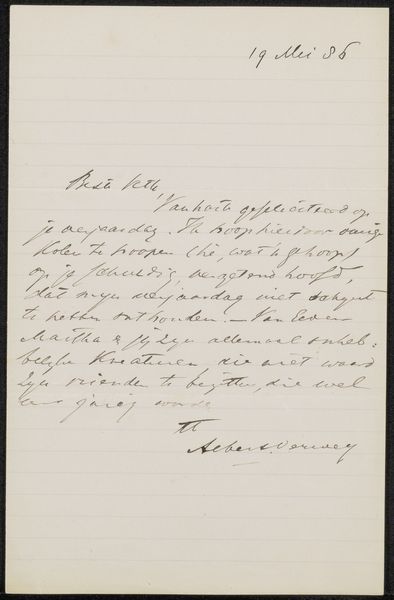 19 Mei 86
Beste Veth,
Van harte gefeliciteerd op
je verjaardag. Ik hoop hierdoor vurige
kolen te hoopen (hè, wat 'n gehoop)
op je schuldig, vergetend hoofd,
dat mijn verjaardag niet
te hebben onthouden. – Van Eeden
Martha & jij zijn allemaal onheb-
belijke kreaturen, die niet waard
zijn vrienden te bezitten, die wel
eens jarig worden
tt
Albert Verwey